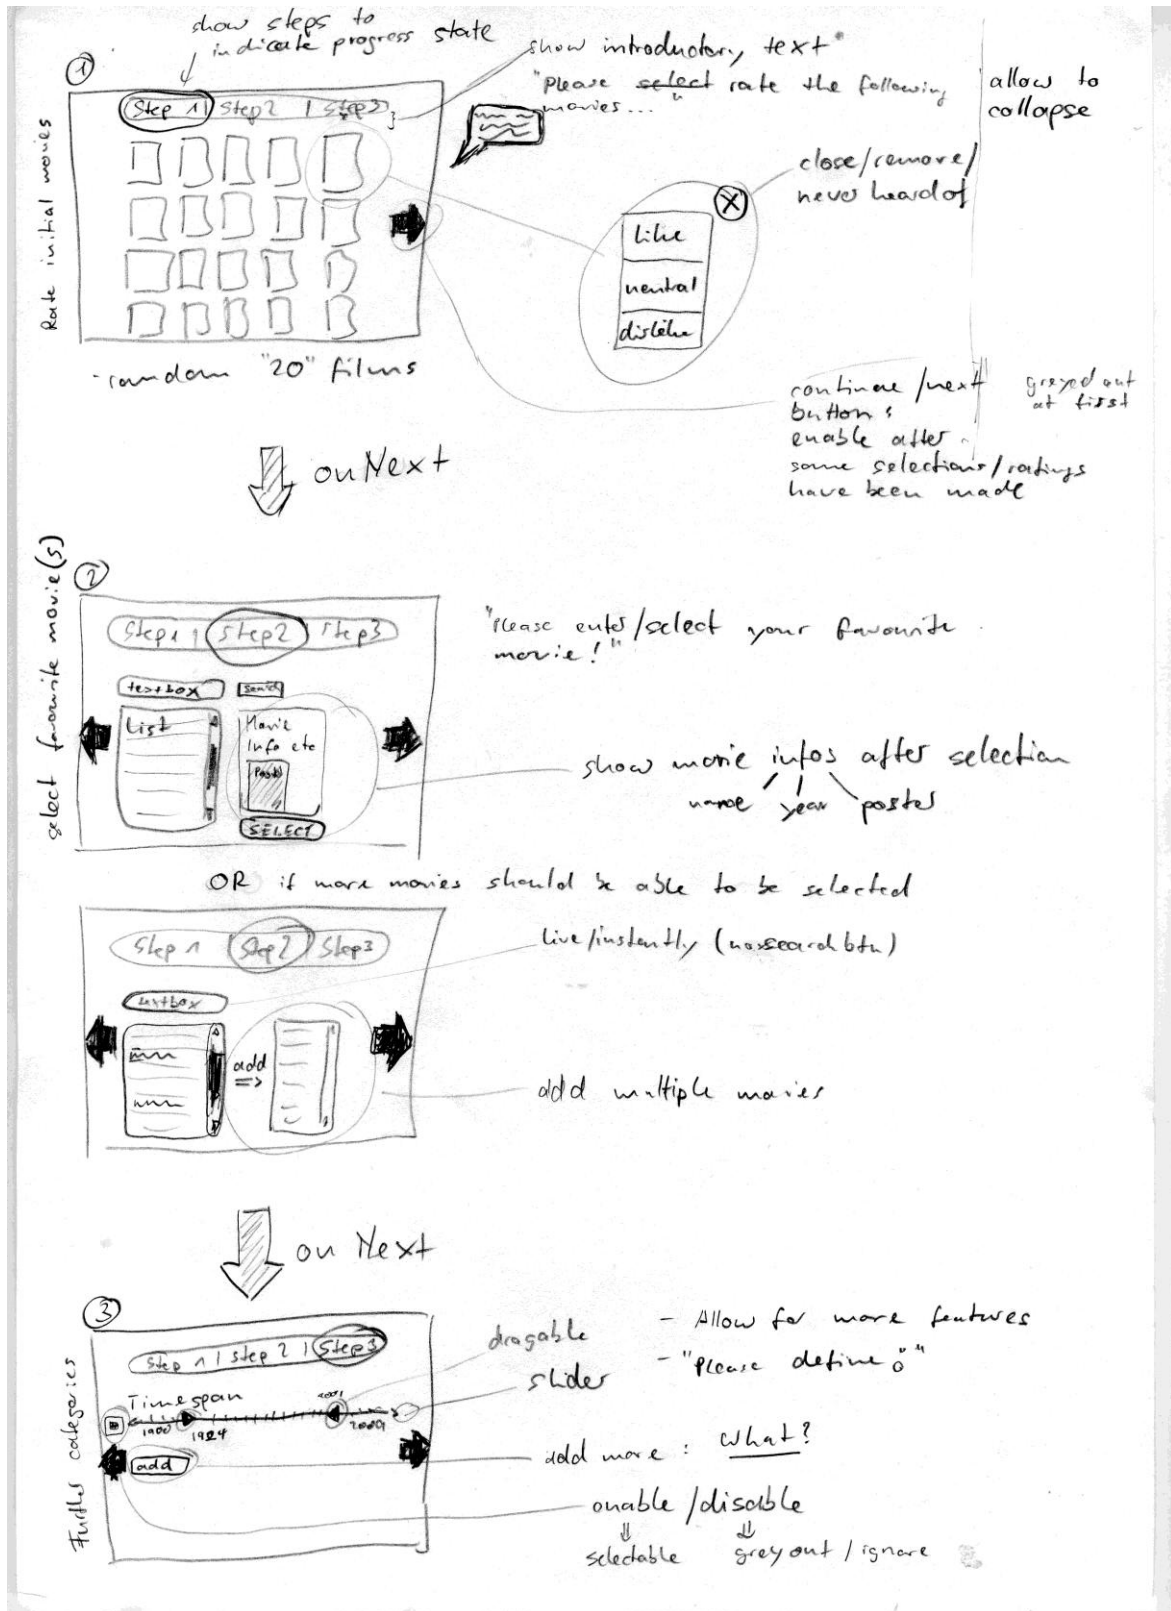 show steps to
indicate progress state
①
Step 1 | Step2 | Step3
Rate initial movies
show introductory text
"Please select rate the following
movies..."
allow to
collapse
close/remove/
never heard of
X
like
neutral
dislike
- random "20" films
continue/next
button:
enable after
some selections/ratings
have been made
greyed out
at first
onNext
select favourite movie(s)
②
Step1 | Step2 | Step3
textbox
search
List
Movie
Info etc
Poster
SELECT
"Please enter/select your favourite
movie!"
show movie infos after selection
name year poster
OR if more movies should be able to be selected
Step 1 | Step2 | Step3
textbox
live/instantly (no search btn)
add
=>
add multiple movies
on Next
③
Further categories
Step 1 | Step 2 | Step3
Timespan
1900
1924
2001
2009
add
dragable
slider
- Allow for more features
- "Please define:"
add more: What?
enable/disable
selectable
grey out / ignore